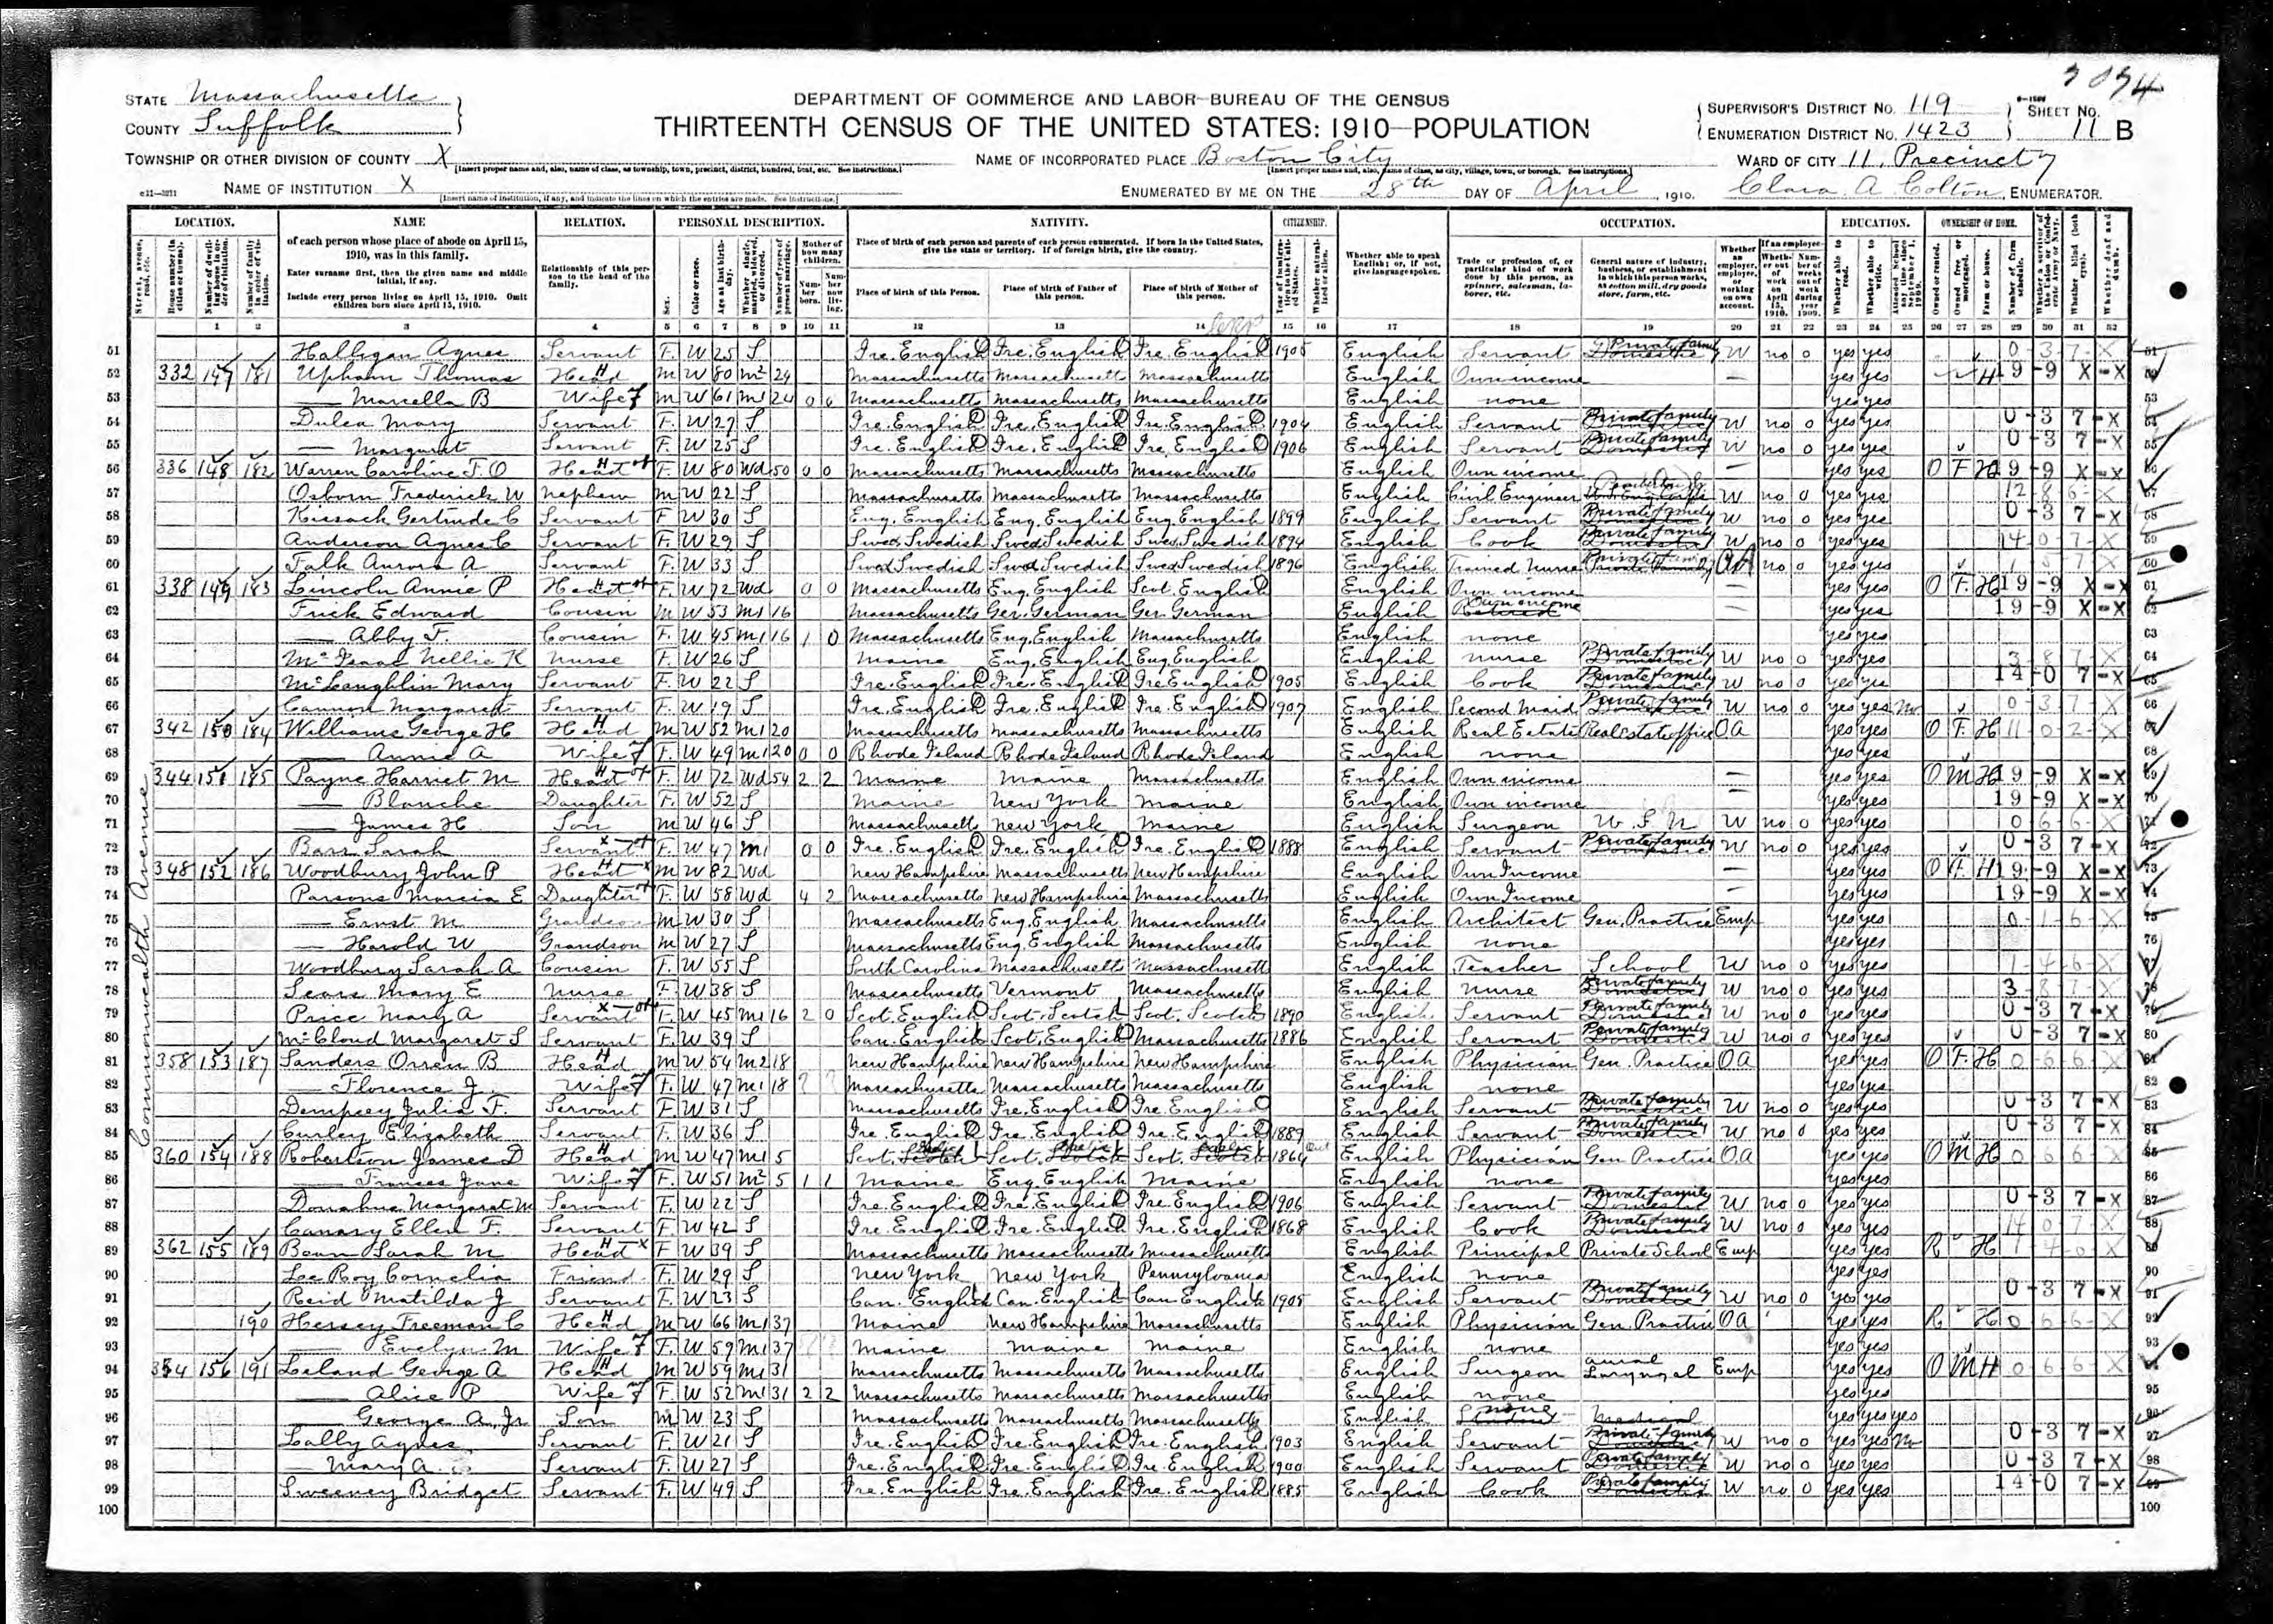 3034
STATE Massachusetts
COUNTY Suffolk
DEPARTMENT OF COMMERCE AND LABOR—BUREAU OF THE CENSUS
THIRTEENTH CENSUS OF THE UNITED STATES: 1910—POPULATION
SUPERVISOR'S DISTRICT No. 119
ENUMERATION DISTRICT No. 1423
SHEET No. 11 B
TOWNSHIP OR OTHER DIVISION OF COUNTY X
NAME OF INCORPORATED PLACE Boston City
WARD OF CITY 11, Precinct 7
NAME OF INSTITUTION X
ENUMERATED BY ME ON THE 28th DAY OF April, 1910.
Clara A Colton, ENUMERATOR.
LOCATION. NAME RELATION. PERSONAL DESCRIPTION. NATIVITY. CITIZENSHIP. OCCUPATION. EDUCATION. OWNERSHIP OF HOME.
of each person whose place of abode on April 15, 1910, was in this family.
Enter surname first, then the given name and middle initial, if any.
Include every person living on April 15, 1910. Omit children born since April 15, 1910.
Relationship of this person to the head of the family.
Place of birth of each person and parents of each person enumerated. If born in the United States, give the state or territory. If of foreign birth, give the country.
Place of birth of this Person. Place of birth of Father of this person. Place of birth of Mother of this person.
Whether able to speak English; or, if not, give language spoken.
1 2 3 4 5 6 7 8 9 10 11 12 13 14 15 16 17 18 19 20 21 22 23 24 25 26 27 28 29 30 31 32
Commonwealth Avenue
51 Halligan Agnes Servant F. W 25 S Ire. English Ire. English Ire. English 1905 English Servant Private family W no 0 yes yes 0-3-7-X
52 332 147 181 Upham Thomas Head M W 80 M2 24 Massachusetts Massachusetts Massachusetts English Own income — yes yes H 19-9 X-X
53 — Marcella B Wife M W 61 M1 24 0 0 Massachusetts Massachusetts Massachusetts English none yes yes
54 Dulea Mary Servant F. W 27 S Ire. English Ire. English Ire. English 1904 English Servant Private family W no 0 yes yes 0-3 7-X
55 — Margaret Servant F. W 25 S Ire. English Ire. English Ire. English 1906 English Servant Private family W no 0 yes yes 0-3 7-X
56 336 148 182 Warren Caroline J. O Head F. W 80 Wd 50 0 0 Massachusetts Massachusetts Massachusetts English Own income — yes yes O F H 19-9 X-X
57 Osborn Frederick W Nephew M W 22 S Massachusetts Massachusetts Massachusetts English Civil Engineer W no 0 yes yes 12-8-6-X
58 Kissack Gertrude C Servant F W 30 S Eng. English Eng. English Eng. English 1899 English Servant Private family W no 0 yes yes 0-3 7-X
59 Anderson Agnes C Servant F. W 29 S Swed. Swedish Swed. Swedish Swed. Swedish 1894 English Cook Private family W no 0 yes yes 14-0-7-X
60 Falk Aurora A Servant F. W 33 S Swed. Swedish Swed. Swedish Swed. Swedish 1896 English Trained Nurse Private family OA no 0 yes yes
61 338 149 183 Lincoln Annie P Head F. W 72 Wd 0 0 Massachusetts Eng. English Scot. English English Own income — yes yes O F. H 19-9 X-X
62 Frick Edward Cousin M W 53 M1 16 Massachusetts Ger. German Ger. German English Own income — yes yes 19-9 X-X
63 — Abby F. Cousin F. W 45 M1 16 1 0 Massachusetts Eng. English Massachusetts English none yes yes
64 McIsaac Nellie K Nurse F. W 26 S Maine Eng. English Eng. English English Nurse Private family W no 0 yes yes 3-8-7-X
65 McLaughlin Mary Servant F. W 22 S Ire. English Ire. English Ire. English 1905 English Cook Private family W no 0 yes yes 14-0 7-X
66 Cannon Margaret Servant F. W 19 S Ire. English Ire. English Ire. English 1907 English Second Maid Private family W no 0 yes yes No 0-3-7-X
67 342 150 184 Williams George H Head M W 52 M1 20 Massachusetts Massachusetts Massachusetts English Real Estate Real estate office OA yes yes O F. H 11-0-2-X
68 — Annie A Wife F. W 49 M1 20 0 0 Rhode Island Rhode Island Rhode Island English none yes yes
69 344 151 185 Payne Harriet M Head F. W 72 Wd 54 2 2 Maine Maine Massachusetts English Own income — yes yes O M H 19-9 X-X
70 — Blanche Daughter F. W 52 S Maine New York Maine English Own income yes yes 19-9 X-X
71 — James H Son M W 46 S Massachusetts New York Maine English Surgeon U.S.N W no 0 yes yes 0 6-6-X
72 Barr Sarah Servant F. W 47 M1 0 0 Ire. English Ire. English Ire. English 1888 English Servant Private family W no 0 yes yes 0-3 7-X
73 348 152 186 Woodbury John P Head M W 82 Wd New Hampshire Massachusetts New Hampshire English Own Income — yes yes O F. H 19-9 X-X
74 Parsons Marcia E Daughter F. W 58 Wd 4 2 Massachusetts New Hampshire Massachusetts English Own Income — yes yes 19-9 X-X
75 — Ernst M Grandson M W 30 S Massachusetts Eng. English Massachusetts English Architect Gen. Practice Emp yes yes 0-1-6-X
76 — Harold W Grandson M W 27 S Massachusetts Eng. English Massachusetts English none yes yes
77 Woodbury Sarah A Cousin F. W 55 S South Carolina Massachusetts Massachusetts English Teacher School W no 0 yes yes 1-4-6-X
78 Sears Mary E Nurse F. W 38 S Massachusetts Vermont Massachusetts English Nurse Private family W no 0 yes yes 3-8-7-X
79 Price Mary A Servant F. W 45 M1 16 2 0 Scot. English Scot. Scotch Scot. Scotch 1890 English Servant Private family W no 0 yes yes 0-3 7-X
80 McCloud Margaret S Servant F. W 39 S Can. English Scot. English Massachusetts 1886 English Servant Private family W no 0 yes yes 0-3 7-X
81 358 153 187 Sanders Orren B Head M W 54 M2 18 New Hampshire New Hampshire New Hampshire English Physician Gen. Practice OA yes yes O F. H 0-6-6-X
82 — Florence J. Wife F. W. 47 M1 18 ? ? Massachusetts Massachusetts Massachusetts English none yes yes
83 Dempsey Julia F. Servant F. W 31 S Massachusetts Ire. English Ire. English English Servant Private family W no 0 yes yes 0-3 7-X
84 Curley Elizabeth Servant F. W 36 S Ire. English Ire. English Ire. English 1889 English Servant Private family W no 0 yes yes 0-3 7-X
85 360 154 188 Robertson James D Head M W 47 M1 5 Scot. Scotch Scot. Scotch Scot. Scotch 1864 English Physician Gen Practice OA yes yes O M H 0 6 6-X
86 — Frances Jane Wife F. W 51 M2 5 1 1 Maine Eng. English Maine English none yes yes
87 Donahue Margaret M Servant F. W 22 S Ire. English Ire. English Ire. English 1906 English Servant Private family W no 0 yes yes 0-3 7-X
88 Canary Ellen F. Servant F W 42 S Ire. English Ire. English Ire. English 1868 English Cook Private family W no 0 yes yes 14 0 7-X
89 362 155 189 Bean Sarah M Head F W 39 S Massachusetts Massachusetts Massachusetts English Principal Private School Emp yes yes R H 1-4-0-X
90 LeRoy Cornelia Friend F. W 29 S New York New York Pennsylvania English none yes yes
91 Reid Matilda J Servant F. W 23 S Can. English Can. English Can English 1905 English Servant Private family W no 0 yes yes 0-3 7-X
92 190 Hersey Freeman C Head M W 66 M1 37 Maine New Hampshire Massachusetts English Physician Gen. Practice OA yes yes R H 0 6-6-X
93 — Evelyn M Wife F. W 59 M1 37 Maine Maine Maine English none yes yes
94 354 156 191 Leland George A Head M W 59 M1 31 Massachusetts Massachusetts Massachusetts English Surgeon aural Laryngal Emp yes yes O M H 0-6-6-X
95 — Alice P Wife F. W 52 M1 31 2 2 Massachusetts Massachusetts Massachusetts English none yes yes
96 — George A, Jr Son M W 23 S Massachusetts Massachusetts Massachusetts English none Student Medical yes yes yes
97 Lally Agnes Servant F. W 21 S Ire. English Ire. English Ire. English 1903 English Servant Private family W no 0 yes yes No 0-3 7-X
98 — Mary A. Servant F. W 27 S Ire. English Ire. English Ire. English 1900 English Servant Private family W no 0 yes yes 0-3 7-X
99 Sweeney Bridget Servant F. W 49 S Ire. English Ire. English Ire. English 1885 English Cook Private family W no 0 yes yes 14-0 7-X
100